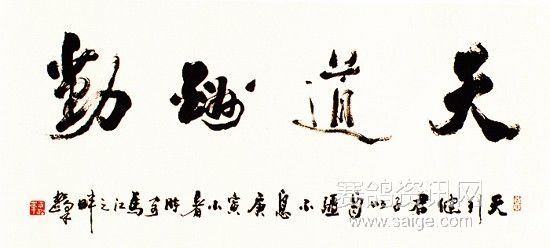 天道酬勤
天行健君子以自强不息庚寅小暑时于马江之畔
赛鸽资讯网
www.saige.com